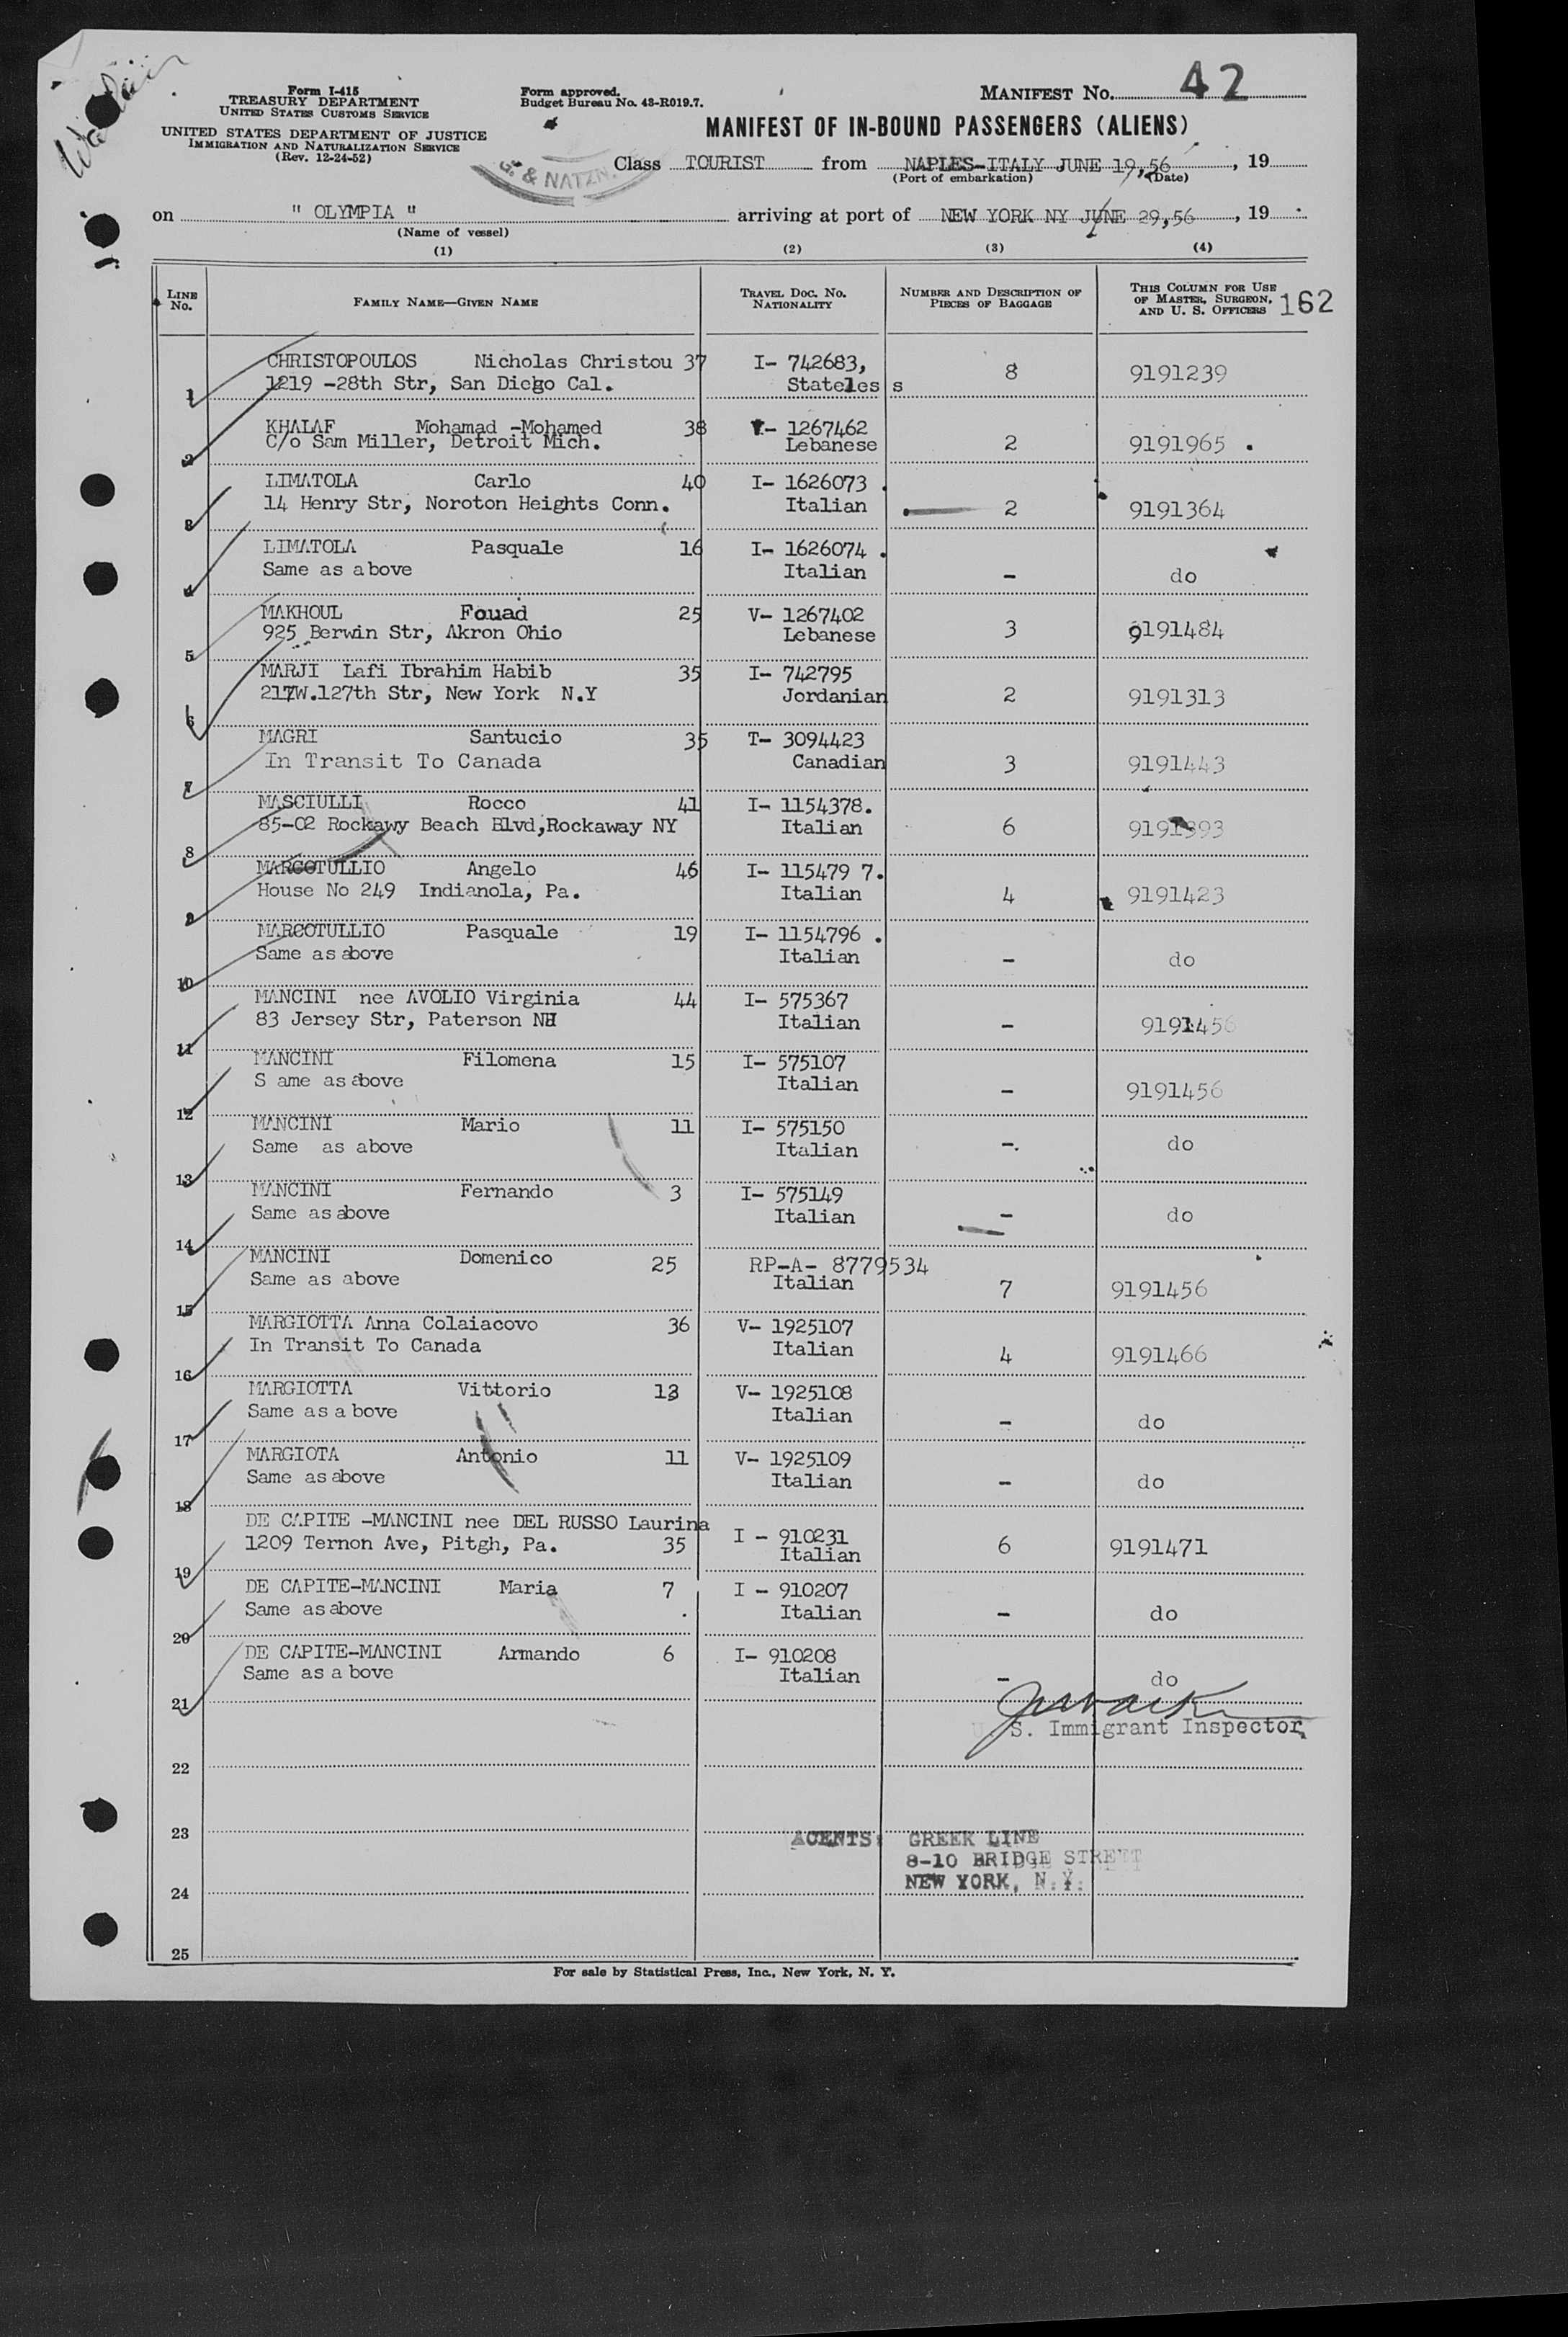 Form I-415
TREASURY DEPARTMENT
UNITED STATES CUSTOMS SERVICE
UNITED STATES DEPARTMENT OF JUSTICE
IMMIGRATION AND NATURALIZATION SERVICE
(Rev. 12-24-52)
Form approved.
Budget Bureau No. 43-R019.7.
MANIFEST No. 42
MANIFEST OF IN-BOUND PASSENGERS (ALIENS)
& NATZN.
Class TOURIST from NAPLES-ITALY JUNE 19,56, 19
(Port of embarkation) (Date)
on " OLYMPIA " arriving at port of NEW YORK NY JUNE 29,56, 19
(Name of vessel)
(1) (2) (3) (4)
LINE No. FAMILY NAME—GIVEN NAME TRAVEL DOC. NO. NATIONALITY NUMBER AND DESCRIPTION OF PIECES OF BAGGAGE THIS COLUMN FOR USE OF MASTER, SURGEON, AND U. S. OFFICERS 162
CHRISTOPOULOS Nicholas Christou 37 I- 742683, 8 9191239
1 1219 -28th Str, San Diego Cal. Stateles s
KHALAF Mohamad -Mohamed 38 - 1267462
2 C/o Sam Miller, Detroit Mich. Lebanese 2 9191965 .
LIMATOLA Carlo 40 I- 1626073 .
3 14 Henry Str, Noroton Heights Conn. Italian 2 9191364
LIMATOLA Pasquale 16 I- 1626074 .
4 Same as above Italian - do
MAKHOUL Fouad 25 V- 1267402
5 925 Berwin Str, Akron Ohio Lebanese 3 9191484
MARJI Lafi Ibrahim Habib 35 I- 742795
6 217W.127th Str, New York N.Y Jordanian 2 9191313
MAGRI Santucio 35 T- 3094423
7 In Transit To Canada Canadian 3 9191443
MASCIULLI Rocco 41 I- 1154378.
8 85-02 Rockawy Beach Blvd,Rockaway NY Italian 6 9191393
MARCOTULLIO Angelo 46 I- 115479 7.
9 House No 249 Indianola, Pa. Italian 4 9191423
MARCOTULLIO Pasquale 19 I- 1154796 .
10 Same as above Italian - do
MANCINI nee AVOLIO Virginia 44 I- 575367
11 83 Jersey Str, Paterson Italian - 9191456
MANCINI Filomena 15 I- 575107
12 S ame as above Italian - 9191456
MANCINI Mario 11 I- 575150
13 Same as above Italian -. do
MANCINI Fernando 3 I- 575149
14 Same as above Italian - do
MANCINI Domenico 25 RP-A- 8779534
15 Same as above Italian 7 9191456
MARGIOTTA Anna Colaiacovo 36 V- 1925107
16 In Transit To Canada Italian 4 9191466
MARGIOTTA Vittorio 13 V- 1925108
17 Same as a bove Italian - do
MARGIOTA Antonio 11 V- 1925109
18 Same as above Italian - do
DE CAPITE -MANCINI nee DEL RUSSO Laurina I - 910231
19 1209 Ternon Ave, Pitgh, Pa. 35 Italian 6 9191471
DE CAPITE-MANCINI Maria 7 I - 910207
20 Same as above Italian - do
DE CAPITE-MANCINI Armando 6 I- 910208
21 Same as a bove Italian - do
U. S. Immigrant Inspector
22
23 AGENTS: GREEK LINE
8-10 BRIDGE STREET
24 NEW YORK, N. Y.
25
For sale by Statistical Press, Inc., New York, N. Y.